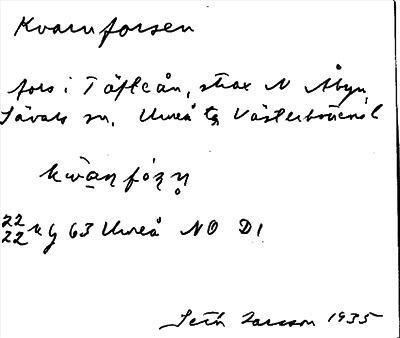 Kvarnforsen
fors i Täfteån, strax N Åbyn,
Sävars sn, Umeå tg Västerbottens l
kwàn̠fǫ́ʒn̥
22/22 kg 63 Umeå NO D1
Seth Larsson 1935